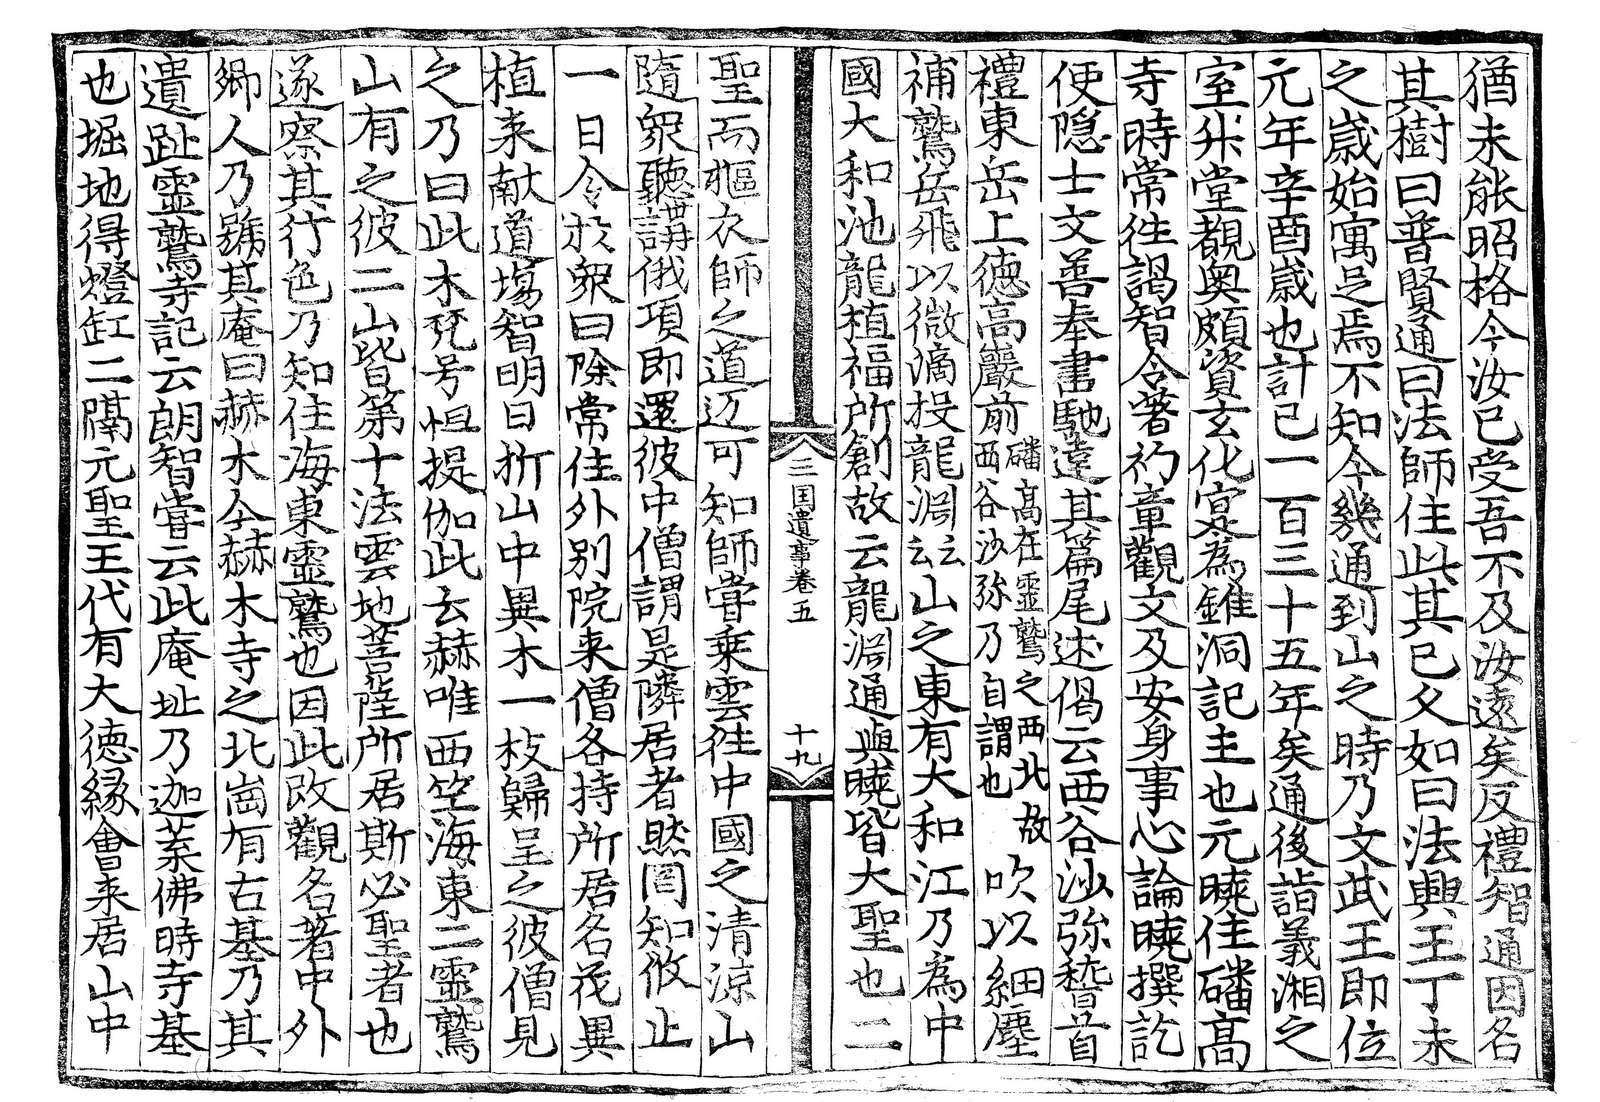 猶未能昭格今汝已受吾不及汝遠矣反禮智通因名
其樹曰普賢通曰法師住此其已久如曰法興王丁未
之歲始寓足焉不知今幾通到山之時乃文武王即位
元年辛酉歲也計已一百三十五年矣通後詣義湘之
室升堂覩奧頗資玄化寔為錐洞記主也元曉住磻高
寺時常往謁智令著初章觀文及安身事心論曉撰訖
便隱士文善奉書馳達其篇尾述偈云西谷沙弥稽首
禮東岳上德高巖前磻高在靈鷲之西北故西谷沙弥乃自謂也吹以細塵
補鷲岳飛以微滴投龍渊云云山之東有大和江乃為中
國大和池龍植福所創故云龍渊通與曉皆大聖也二
三国遺事卷五 十九
聖而摳衣師之道迈可知師嘗乗雲往中國之清涼山
隨衆聽講俄項即還彼中僧謂是隣居者然罔知攸止
一日令於衆曰除常住外别院来僧各持所居名花異
植来献道場智明日折山中異木一枝歸呈之彼僧見
之乃曰此木梵号怛提伽此云赫唯西竺海東二靈鷲
山有之彼二山皆第十法雲地菩薩所居斯必聖者也
遂察其行色乃知住海東靈鷲也因此改觀名著中外
鄉人乃號其庵曰赫木今赫木寺之北崗有古基乃其
遺趾靈鷲寺記云朗智嘗云此庵址乃迦葉佛時寺基
也堀地得燈缸二隔元聖王代有大德緣會来居山中